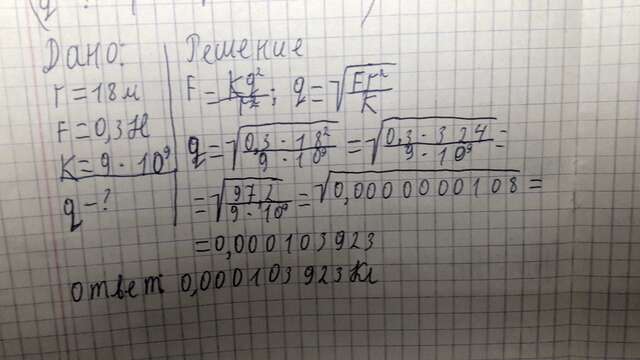 Дано:
r = 18 м
F = 0,3 Н
K = 9 · 10⁹
q - ?
Решение
F = Kq²/r²; q = √(Fr²/K)
q = √(0,3 · 18²/9 · 10⁹) = √(0,3 · 324/9 · 10⁹) =
= √(97,2/9 · 10⁹) = √0,0000000108 =
= 0,000103923
ответ 0,000103923 Кл